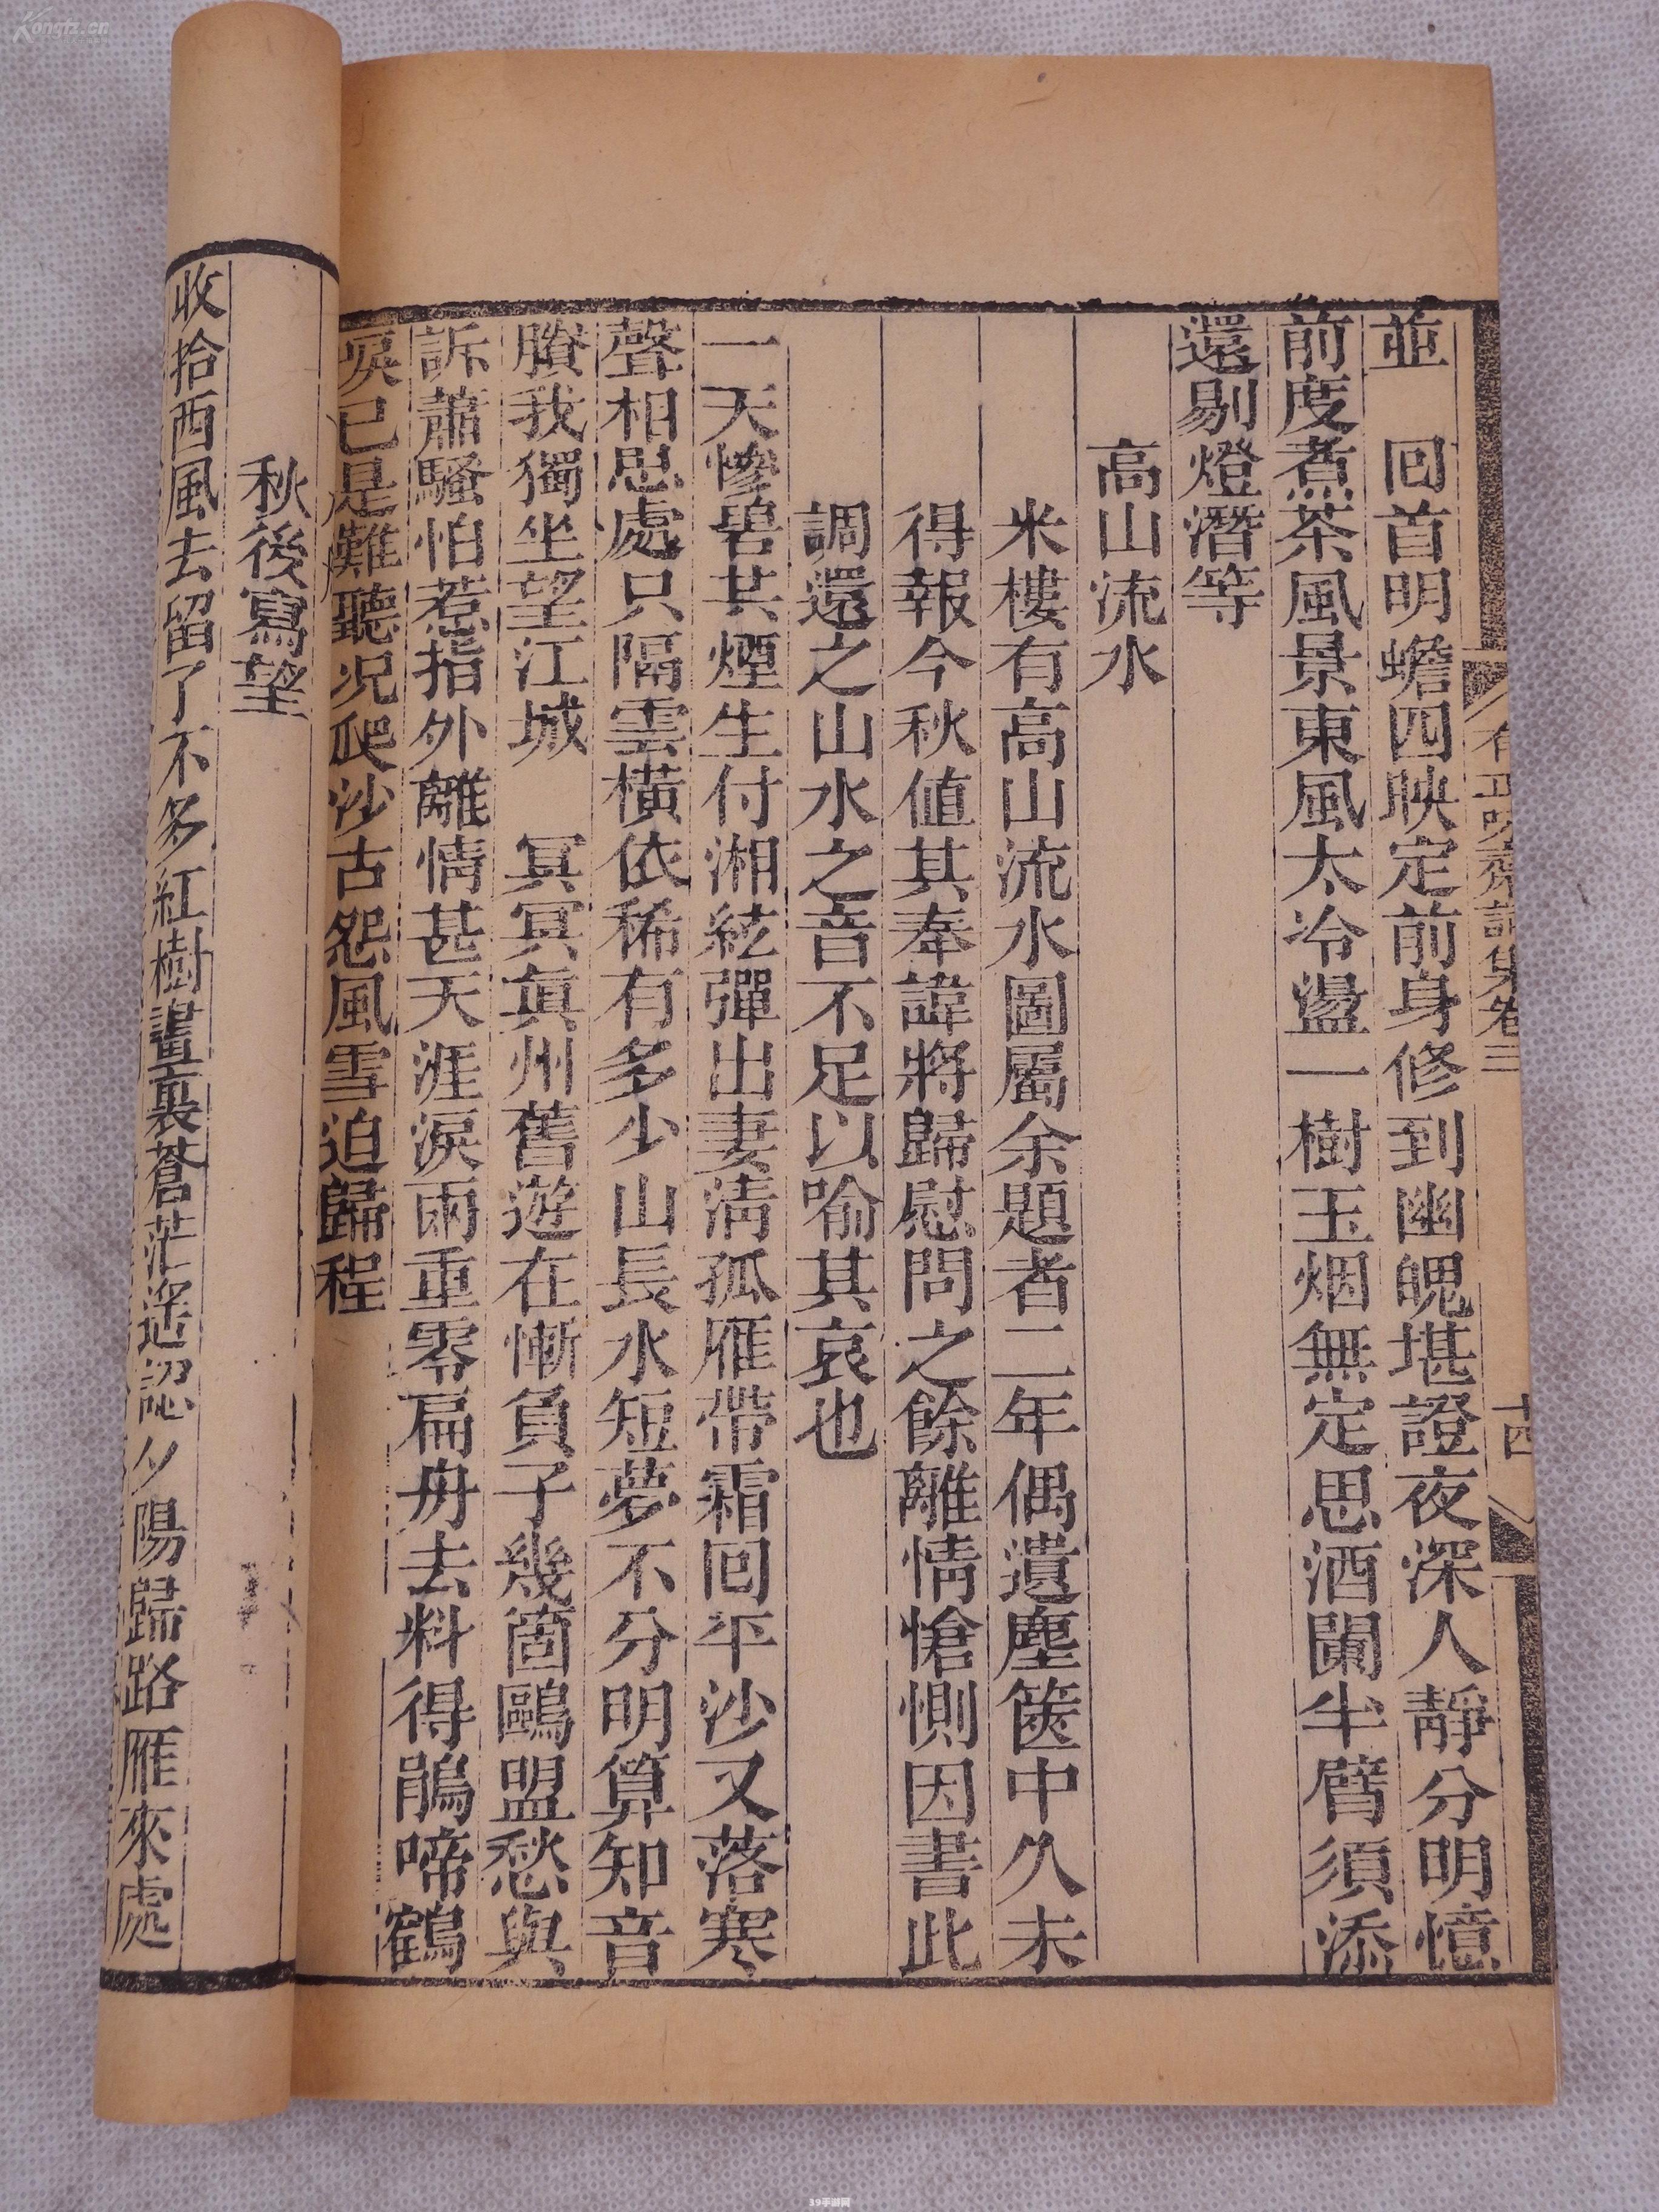 並　回首明蟾四映定前身修到幽魄堪證夜深人靜分明憶
前度煮茶風景東風太冷盪一樹玉烟無定思酒闌半臂須添
還剔燈潛等
高山流水
米樓有高山流水圖屬余題者二年偶遺塵篋中久未
得報今秋値其奉諱將歸慰問之餘離情愴惻因書此
調還之山水之音不足以喻其哀也
一天慘碧其煙生付湘絃彈出妻淸孤雁帶霜回平沙又落寒
聲相思處只隔雲橫依稀有多少山長水短夢不分明算知音
賸我獨坐望江城　冥冥眞州舊遊在慚負子幾箇鷗盟愁與
訴蕭騷怕惹指外離情甚天涯淚雨重零扁舟去料得鵑啼鶴
唳已是難聽况爬沙古怨風雪迫歸程
秋後寫望
收拾西風去留了不多紅樹畫裏蒼茫遥認夕陽歸路雁來處
有正味齋詞集卷三
十四
Kongfz.cn
39手游网